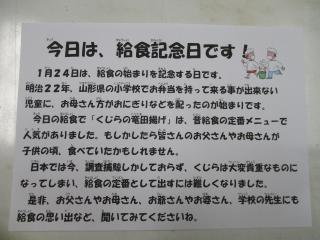 今日は、給食記念日です！
１月２４日は、給食の始まりを記念する日です。
明治２２年、山形県の小学校でお弁当を持って来る事が出来ない
児童に、お母さん方がおにぎりなどを配ったのが始まりです。
今日の給食で「くじらの竜田揚げ」は、昔給食の定番メニューで
人気がありました。もしかしたら皆さんのお父さんやお母さんが
子供の頃、食べていたかもしれません。
日本では今、調査捕鯨しかしておらず、くじらは大変貴重なものに
なってしまい、給食の定番として出すには難しくなりました。
是非、お父さんやお母さん、お爺さんやお婆さん、学校の先生にも
給食の思い出など、聞いてみてくださいね。